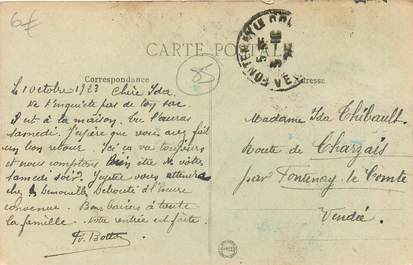 6€
CARTE POSTALE
Correspondance
Adresse
FONTENAY LE
Le 1 Octobre 1923
Chère Ida
ne t'inquiète pas de ton sac.
Il est à la maison. tu l'auras
samedi. J'espère que vous avez fait
un bon retour. Ici ça va toujours
et nous comptons bien être de votre
samedi soir. vous attendra
chez Debouté à l'heure
convenue. Bons baisers à toute
la famille. Votre rentrée est faite.
Madame Ida Thibault
Route de Charzais
par Fontenay le Comte
Vendée.